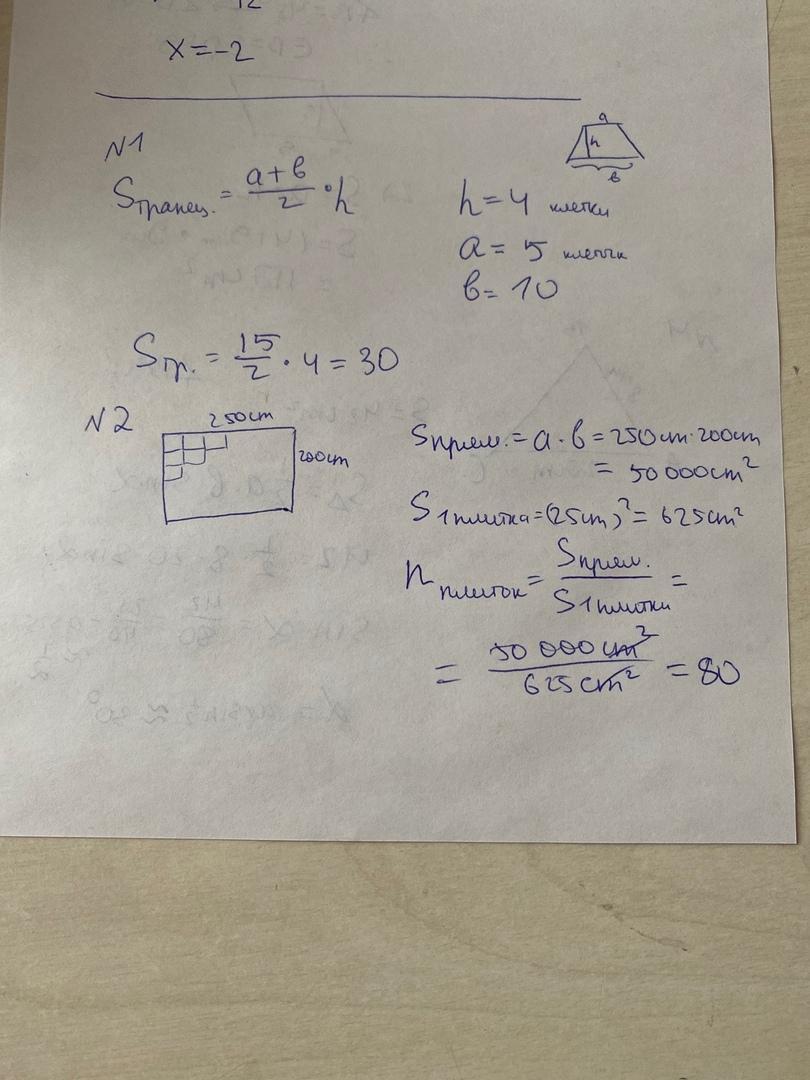 12
x = -2
N1
a
h
в
Sтрапец. = a+в/2 · h
h = 4 клетки
a = 5 клетки
в = 10
Sтр. = 15/2 · 4 = 30
N2
250cm
200cm
Sпрям. = a · в = 250cm · 200cm
= 50 000cm²
S1плитка = (25cm)² = 625cm²
nплиток = Sпрям./S1плитки =
= 50 000 cm²/625 cm² = 80